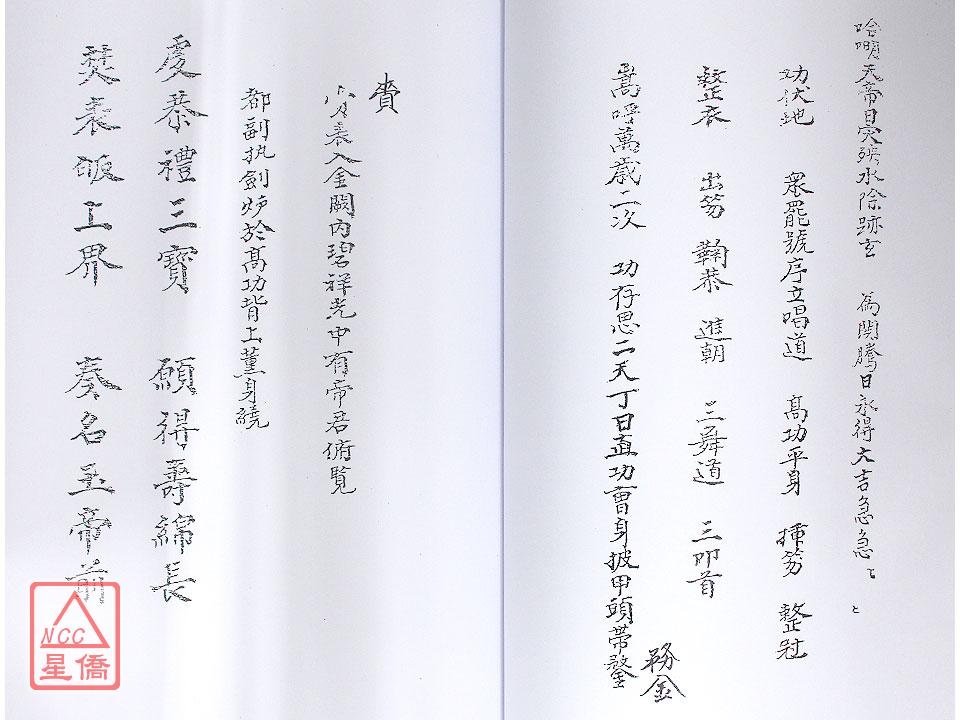 天帝日 張水除跡玄 為開騰日永得大吉急急
功伏地 眾罷號序立唱道 高功平身 搢笏 整冠
整衣 出笏 鞠恭 進朝 三舞道 三叩首
嵩呼萬歲二次 功存思二天丁日直功曹身披甲頭帶鍪
務金
賫
表入金闕內碧祥光中有帝君俯覧
都副执劍炉於高功背上薰身繞
虔恭禮三寶 願得壽綿長
焚表 界 奏名玉帝前
NCC
星僑